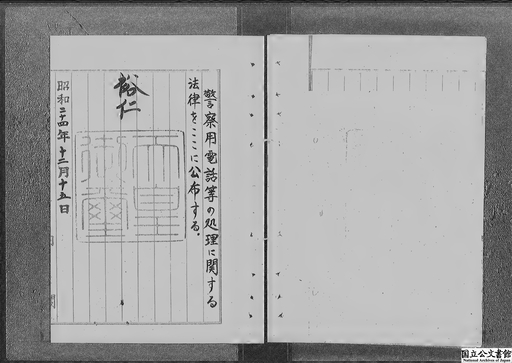 警察用電話等の処理に関する
法律をここに公布する。
裕仁
天皇
御璽
昭和二十四年十二月十五日
国立公文書館
National Archives of Japan